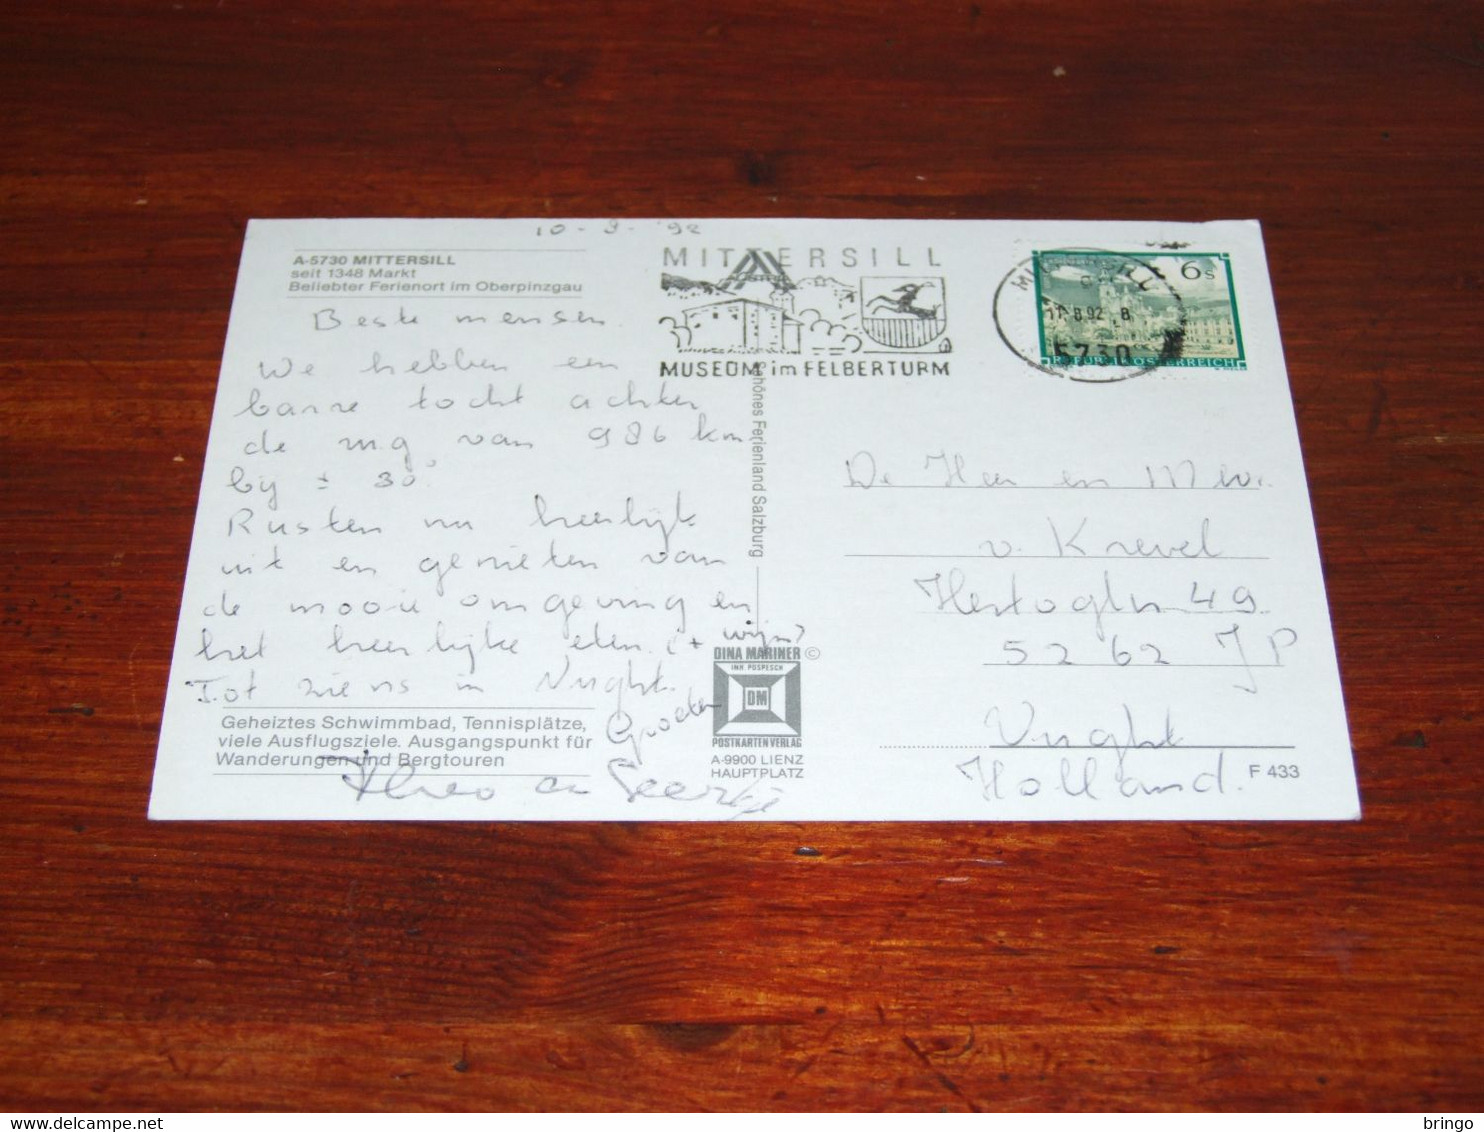 10-8-'92
A-5730 MITTERSILL
seit 1348 Markt
Beliebter Ferienort im Oberpinzgau
Beste mensen.
We hebben een
barre tocht achter
de rug van 986 km
bij ± 30°.
Rusten nu heerlijk
uit en genieten van
de mooie omgeving en
het heerlijke eten. (+ wijn)
Tot ziens in Vught.
Groeten
Theo en
Geheiztes Schwimmbad, Tennisplätze,
viele Ausflugsziele. Ausgangspunkt für
Wanderungen und Bergtouren
Schönes Ferienland Salzburg
DINA MARINER ©
INH. POSPESCH
DM
POSTKARTENVERLAG
A-9900 LIENZ
HAUPTPLATZ
MITTERSILL
MUSEUM im FELBERTURM
MITTERSILL
8.92
5730
6s
REPUBLIK ÖSTERREICH
De Heer en Mw.
v. Krevel
Hertogln 49
5262 JP
Vught
Holland.
F 433
bringo